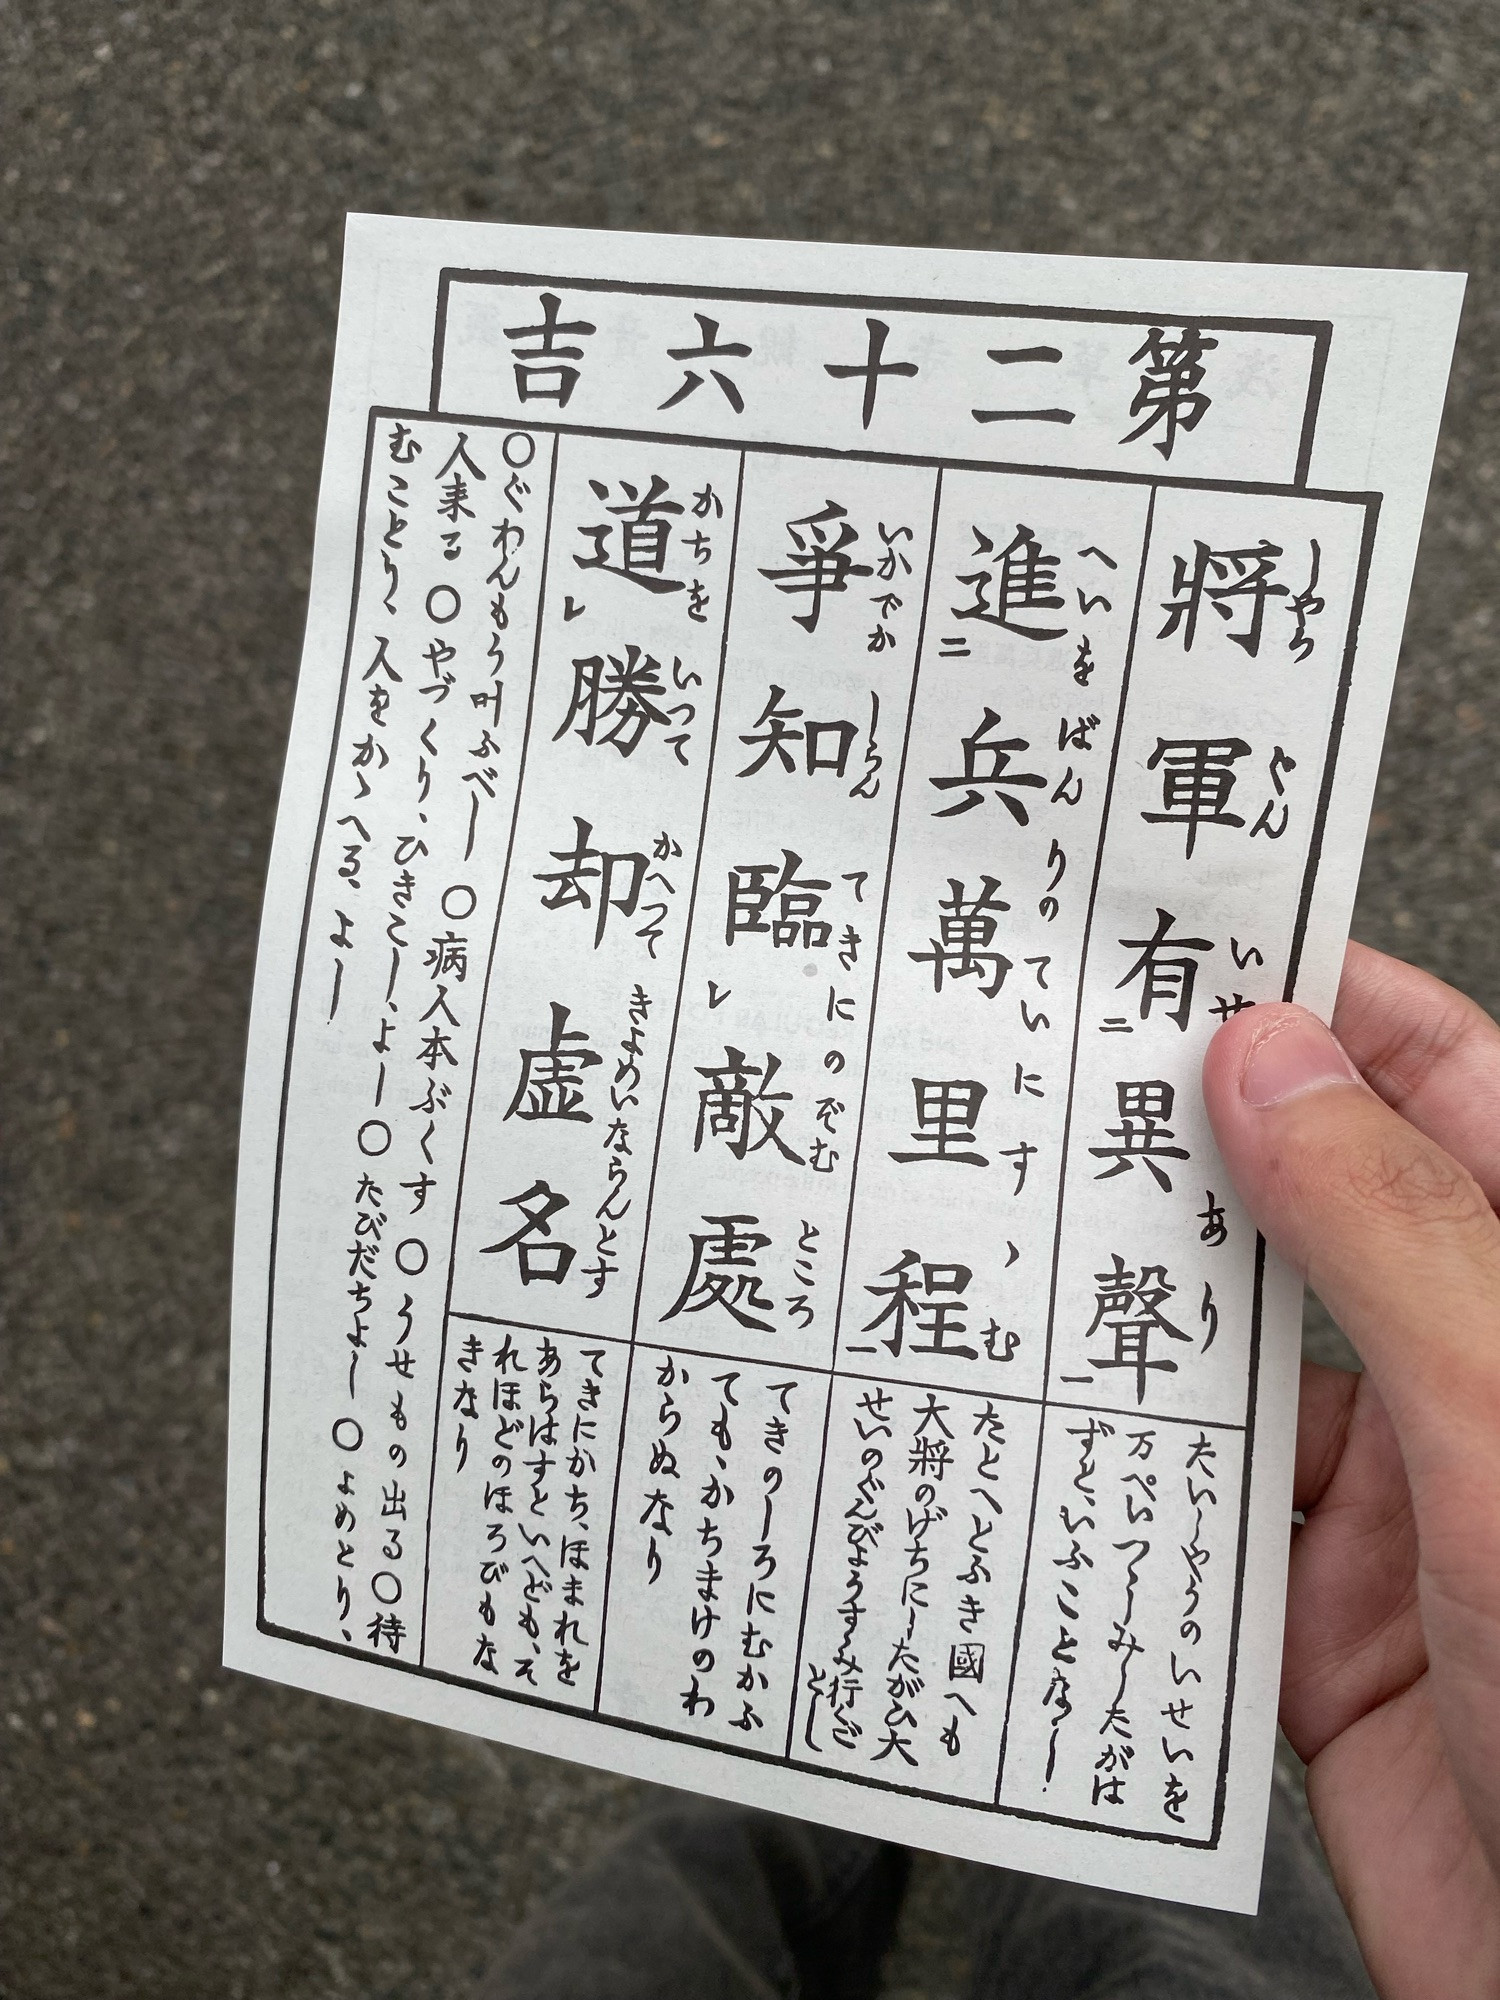 第二十六吉
將軍有異聲
しやうぐんいせ あり
たいしやうのいせいを
万ぺいつゝしみしたがは
ずといふことなし
進兵萬里程
へいをばんりのていにすゝむ
たとへとふき國へも
大將のげちにしたがひ大
せいのぐんびようすゝみ行ごとし
爭知臨敵處
いかでかしらんてきにのぞむところ
てきのしろにむかふ
てもゝかちまけのわ
からぬなり
道勝却虚名
かちをいつてかへつてきよめいならんとす
てきにかち、ほまれを
あらはすといへども、そ
れほどのほろびもな
きなり
〇ぐわんもう叶ふべし 〇病人本ぶくす 〇うせもの出る〇待
人来る 〇やづくり、ひきこし、よし 〇たびだちよし 〇よめとり、
むことり、人をかゝへる、よし